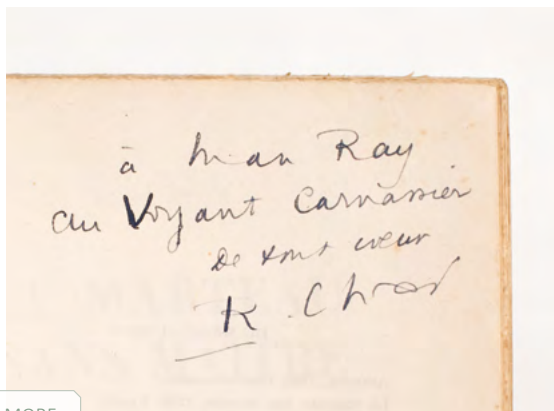 à Man Ray
au Voyant Carnassier
De tout cœur
R. Char
MORE